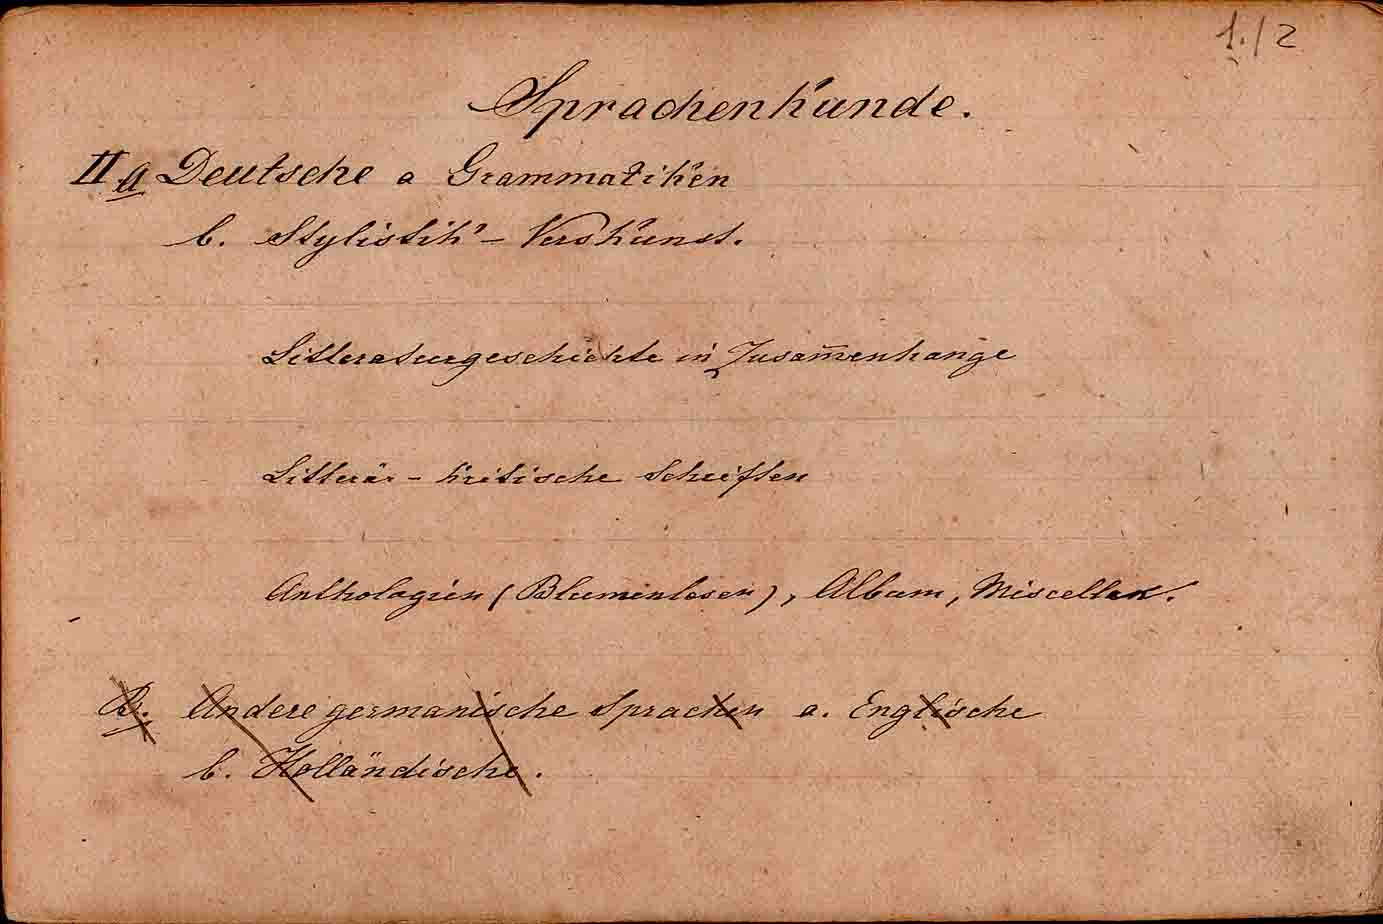 1./2
Sprachenkunde.
II a Deutsche a Grammatiken
b. Stylistik - Verskunst.
Litteraturgeschichte in Zusam̅enhange
Litterär - kritische Schriften
Anthologien (Blumenlesen), Album, Miscellen.
B. Andere germanische Sprachen a. Englische
b. Holländische.